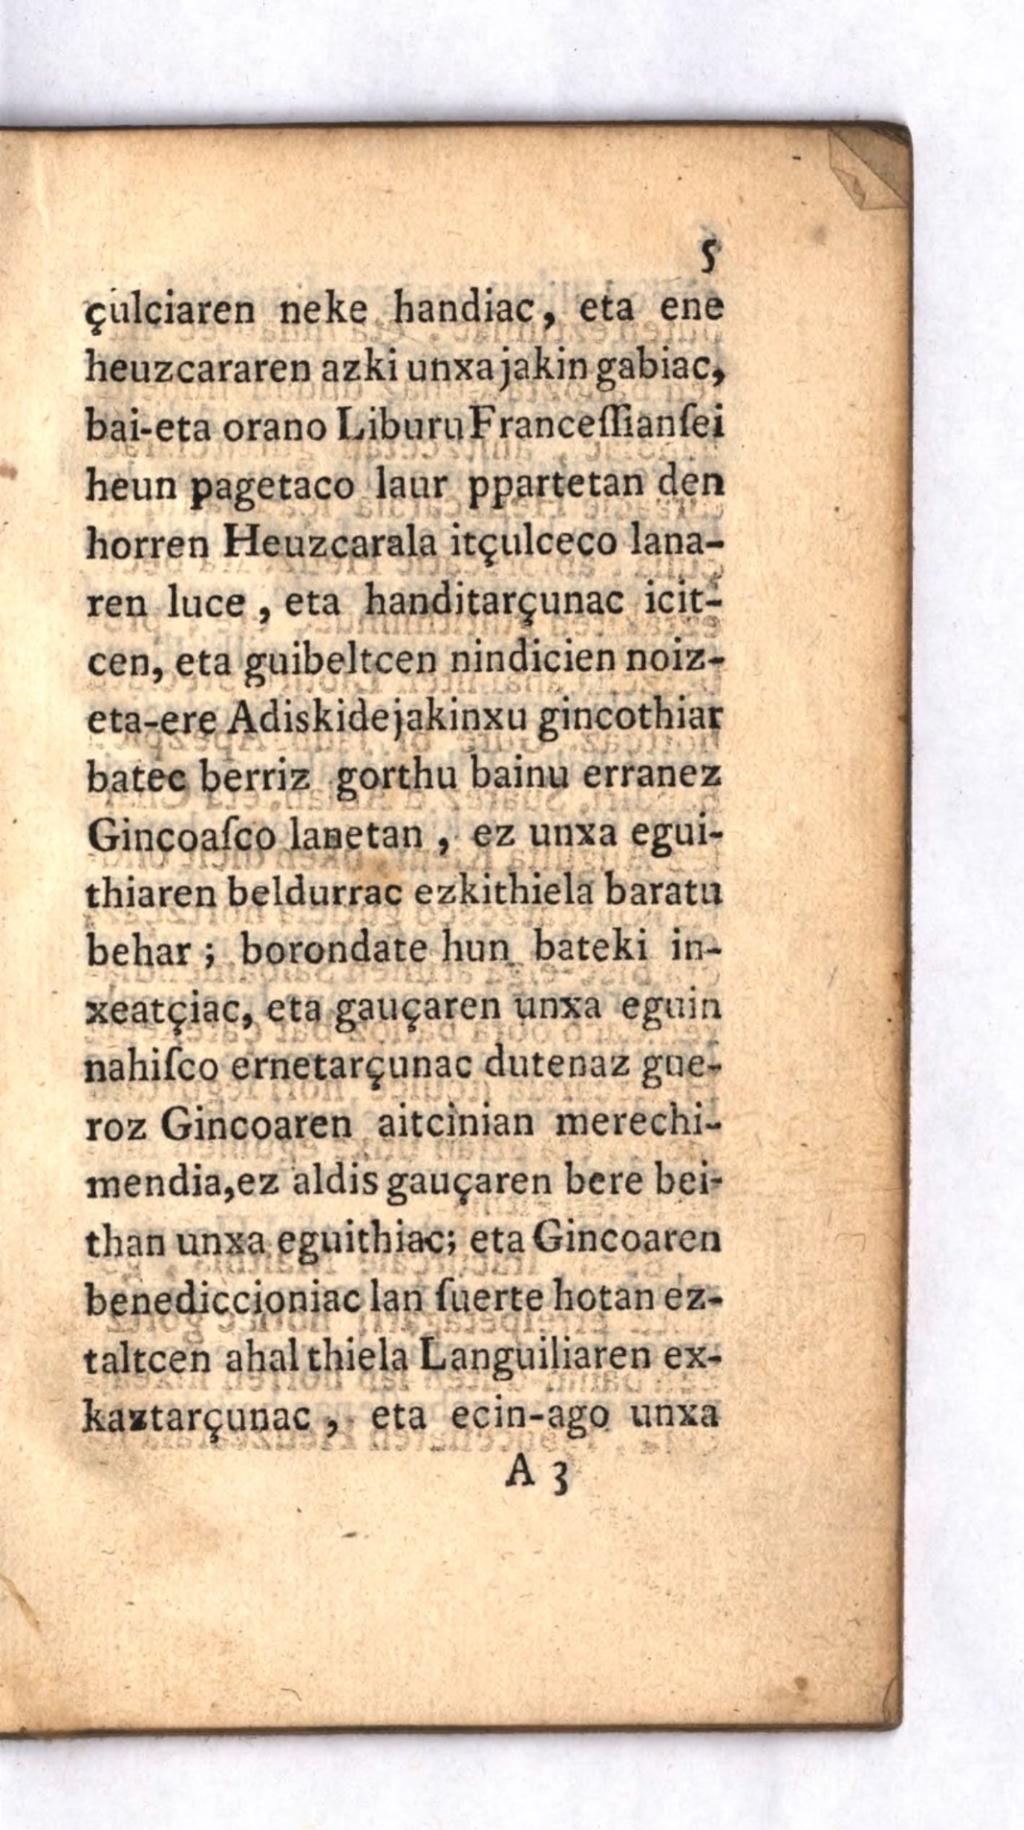 5
çulciaren neke handiac, eta ene
heuzcararen azki unxa jakin gabiac,
bai-eta orano Liburu Franceſſian ſei
heun pagetaco laur ppartetan den
horren Heuzcarala itçulceco lana-
ren luce, eta handitarçunac icit-
cen, eta guibeltcen nindicien noiz-
eta-ere Adiskide jakinxu gincothiar
batec berriz gorthu bainu erranez
Gincoaſco lanetan, ez unxa egui-
thiaren beldurrac ezkithiela baratu
behar; borondate hun bateki in-
xeatçiac, eta gauçaren unxa eguin
nahiſco ernetarçunac dutenaz gue-
roz Gincoaren aitcinian merechi-
mendia, ez aldis gauçaren bere bei-
than unxa eguithiac; eta Gincoaren
benediccioniac lan ſuerte hotan ez-
taltcen ahal thiela Languiliaren ex-
kaztarçunac, eta ecin-ago unxa
A 3